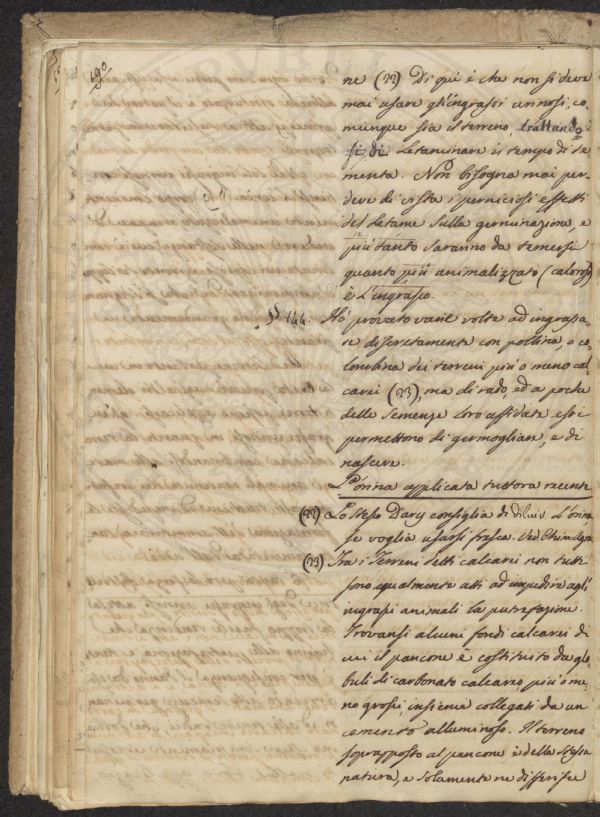 190
ne (22) Di qui è che non si deve
mai usare gl'ingrassi urinosi, co-
munque sia il terreno, trattando
si di letaminare in tempo di se
menta. Non bisogna mai per-
dere di vista i perniciosi effetti
del letame sulla germinazione, e
più tanto saranno da temersi
quanto più animalizzato (caloroso)
è l'ingrasso.
§ 144. Hò provato varie volte ad ingrassa-
re discretamente con pollina, o co-
lombina dei terreni più o meno cal
carei (23), ma di rado, ed a poche
delle semenze loro affidate essi
permettono di germogliare, e di
nascere.
L'orina applicata tuttora recente
(22) Lo stesso Davy consiglia di diluir l'orina
se voglia usarsi fresca. Ved. Chim. Agr.
(23) Tra i Terreni detti calcarei non tutti
sono egualmente atti ad impedire agli
ingrassi animali la putrefazione.
Trovansi alcuni fondi calcarei di
cui il pancone è costituito da glo
buli di carbonato calcareo più o me
no grossi, insieme collegati da un
cemento alluminoso. Il terreno
soprapposto al pancone è della stessa
natura, e solamente ne differisce